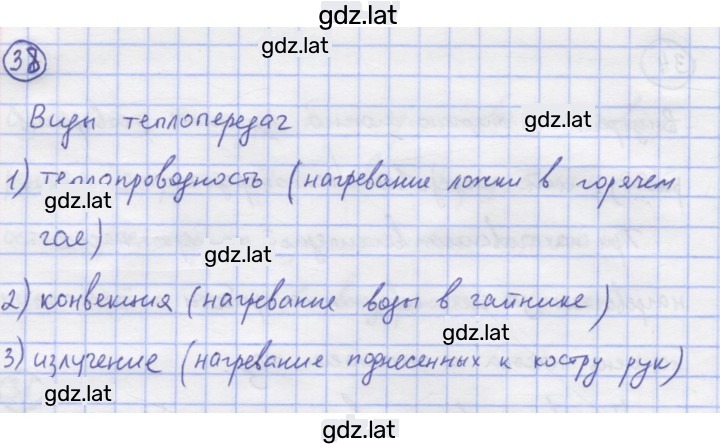 gdz.lat
gdz.lat
38
Виды теплопередач
gdz.lat
1) теплопроводность (нагревание ложки в горячем
gdz.lat
чае)
gdz.lat
2) конвекция (нагревание воды в чайнике)
gdz.lat
3) излучение (нагревание поднесенных к костру рук)
gdz.lat
gdz.lat